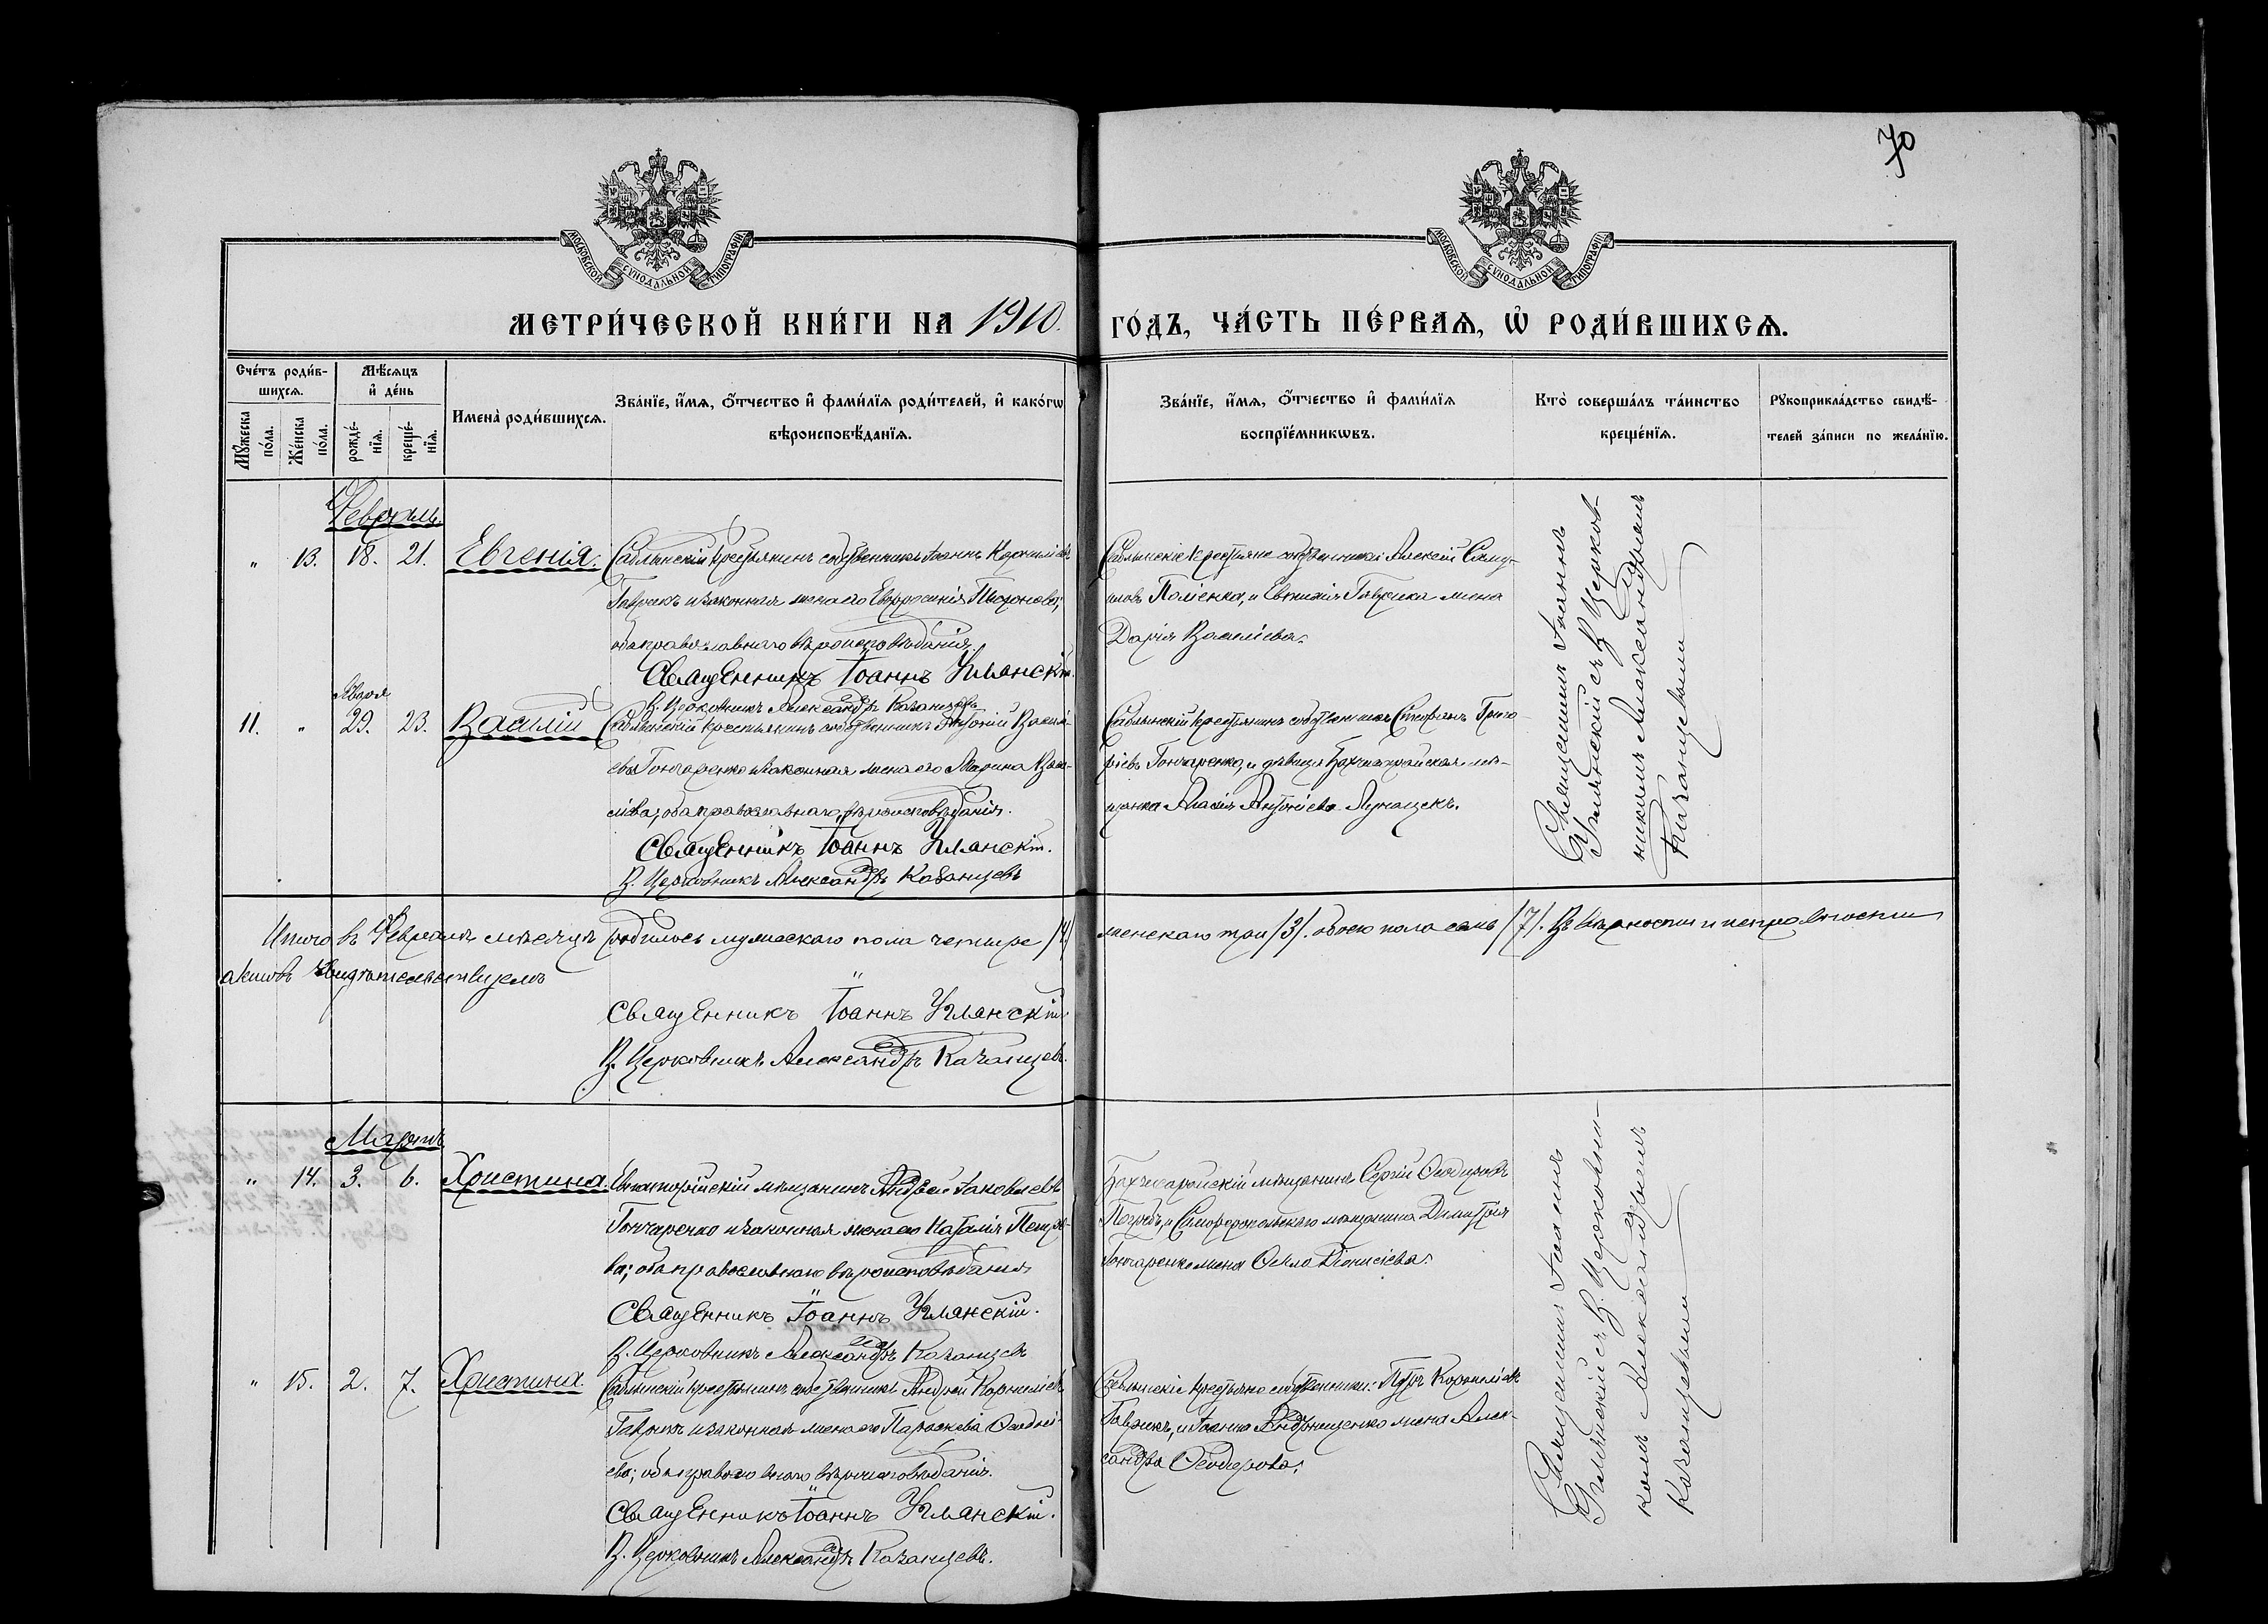 70
МОСКОВСКОЙ СУНОДАЛЬНОЙ ТИПОГРАФІИ
МОСКОВСКОЙ СУНОДАЛЬНОЙ ТИПОГРАФІИ
МЕТРИ́ЧЕСКОЙ КНИ́ГИ НА 1910. ГО́ДЪ, ЧА́СТЬ ПЕ́РВАѦ, Ѡ҆ РОДИ́ВШИХСѦ.
Сче́тъ роди́в-
шихсѧ.
Мѣ́сѧцъ
и҆ де́нь
Мꙋ́жеска
по́ла.
Же́нска
по́ла.
рожде́-
нїѧ.
креще́-
нїѧ.
Имена̀ роди́вшихсѧ.
Зва́нїе, и҆́мѧ, ѻ҆́тчество и҆ фами́лїѧ роди́телей, и҆ како́гѡ
вѣроисповѣ́данїѧ.
Зва́нїе, и҆́мѧ, ѻ҆́тчество и҆ фами́лїѧ
воспрїе́мникѡвъ.
Кто̀ соверша́лъ та́инство
креще́нїѧ.
Рꙋкоприкла́дство свидѣ́-
телей за́писи по жела́нїю.
Февраль.
" 13. 18. 21. Евгенія.
Саблынскій крестьянинъ собственникъ Іоаннъ Корниліевъ
Гаврикъ и законная жена его Евфросинія
оба православнаго вѣроисповѣданія.
Священникъ Іоаннъ Углянскій.
В. Церковникъ Александръ Казанцевъ
Саблынскіе крестьяне собственники Алексій Саму-
иловъ и Евгенія Гаврика жена
Дарія Василіева.
Священникъ Іоаннъ
Углянскій съ В. Церков-
никомъ Александромъ
Казанцевымъ
Января
11. " 29. 23. Василій
Саблынскій крестьянинъ собственникъ Антоній Васили-
евъ Гончаренко и законная жена его Марина Васи-
ліева, оба православнаго вѣроисповѣданія.
Священникъ Іоаннъ Углянскій.
В. Церковникъ Александръ Казанцевъ
Саблынскій крестьянинъ собственникъ Стефанъ Григо-
ріевъ Гончаренко, и дѣвица Бахчисарайская мѣ-
щанка Антоніева
Итого въ Февралѣ мѣсяцѣ родилось мужескаго пола четыре /4/ женскаго три /3/. обоего пола семь /7/. Въ вѣрности и исправности
актовъ свидѣтельствуемъ
Священникъ Іоаннъ Углянскій
В. Церковникъ Александръ Казанцевъ.
Мартъ
" 14. 3. 6. Христина.
Евпаторійскій мѣщанинъ Андрей Іаковлевъ
Гончаренко и законная жена его Наталія Петро-
ва; оба православнаго вѣроисповѣданія
Священникъ Іоаннъ Углянскій.
В. Церковникъ Александръ Казанцевъ
Бахчисарайскій мѣщанинъ Сергій Ѳеодоровъ
и Симферопольскаго мѣщанина Димитрія
Гончаренко жена Діонисіева.
Священникъ Іоаннъ
Углянскій съ В. Церковни-
комъ Александромъ
Казанцевымъ
" 15. 2. 7. Христина.
Саблынскій крестьянинъ собственникъ Андрей Корниліевъ
Гаврикъ и законная жена его Параскева
ева; оба православнаго вѣроисповѣданія.
Священникъ Іоаннъ Углянскій.
В. Церковникъ Александръ Казанцевъ.
Саблынскіе крестьяне собственники: Петръ Корниліевъ
Гаврикъ, и Іоанна Андрющенко жена Алек-
сандра Ѳеодорова.